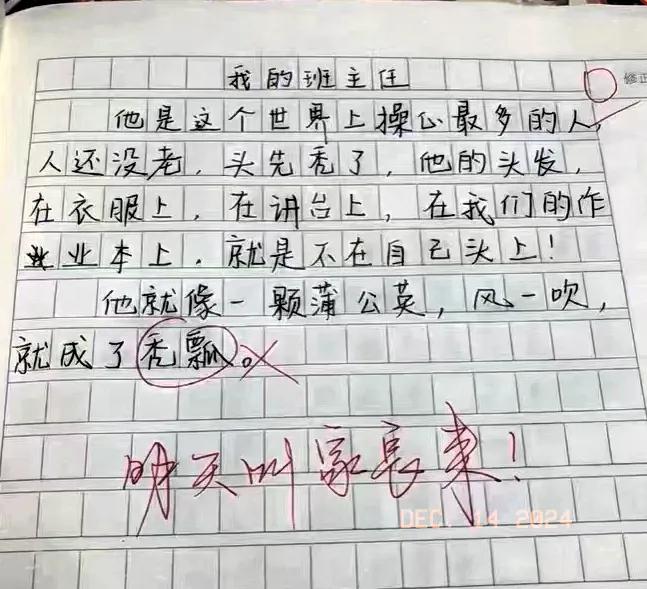 我的班主任
修正
他是这个世界上操心最多的人，
人还没老，头先秃了，他的头发，
在衣服上，在讲台上，在我们的作
业本上，就是不在自己头上！
他就像一颗蒲公英，风一吹，
就成了秃瓢。
明天叫家长来！
DEC. 14 2024